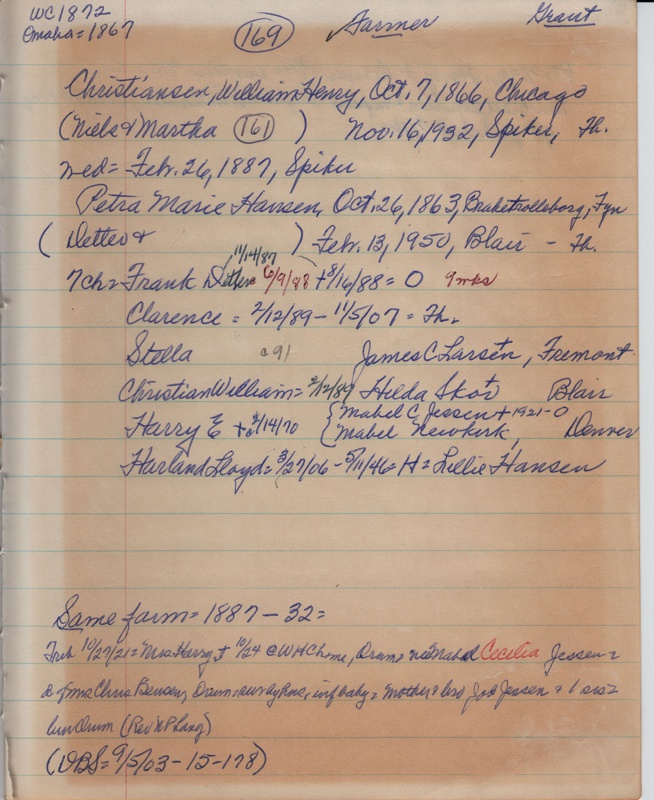 WC1872
Omaha=1867
169 Farmer Grant
Christiansen, William Henry, Oct. 7, 1866, Chicago
(Niels & Martha 161 ) Nov. 16, 1932, Spiker, Th.
wed= Feb. 26, 1887, Spiker
Petra Marie Hansen, Oct. 26, 1863, Brahetrolleborg, Fyn
( Detlev & ) Feb. 13, 1950, Blair - Th.
11/14/87
7ch= Frank 6/9/88 + 8/16/88= 0 9wks
Clarence = 2/12/89 - 11/5/07 = Th.
Stella c91 James C Larsen, Fremont
Christian William= 2/12/89 Hilda Skov Blair
Harry E + 2/14/70 { Mabel C Jessen + 1921-0
Mabel Newkirk, Denver
Harland Lloyd= 3/27/06 - 5/11/46= H= Lillie Hansen
Same farm= 1887 - 32=
Trib 10/27/21= Mrs Harry + 10/24 @ WHC home, Orum= nee Mabel Cecelia Jessen=
Mrs Chris Bensen, Orum, inf baby= mother & bro Joe Jessen & 1 sis=
Orum (Rev NP Lang)
(DBS= 9/5/03-15-178)